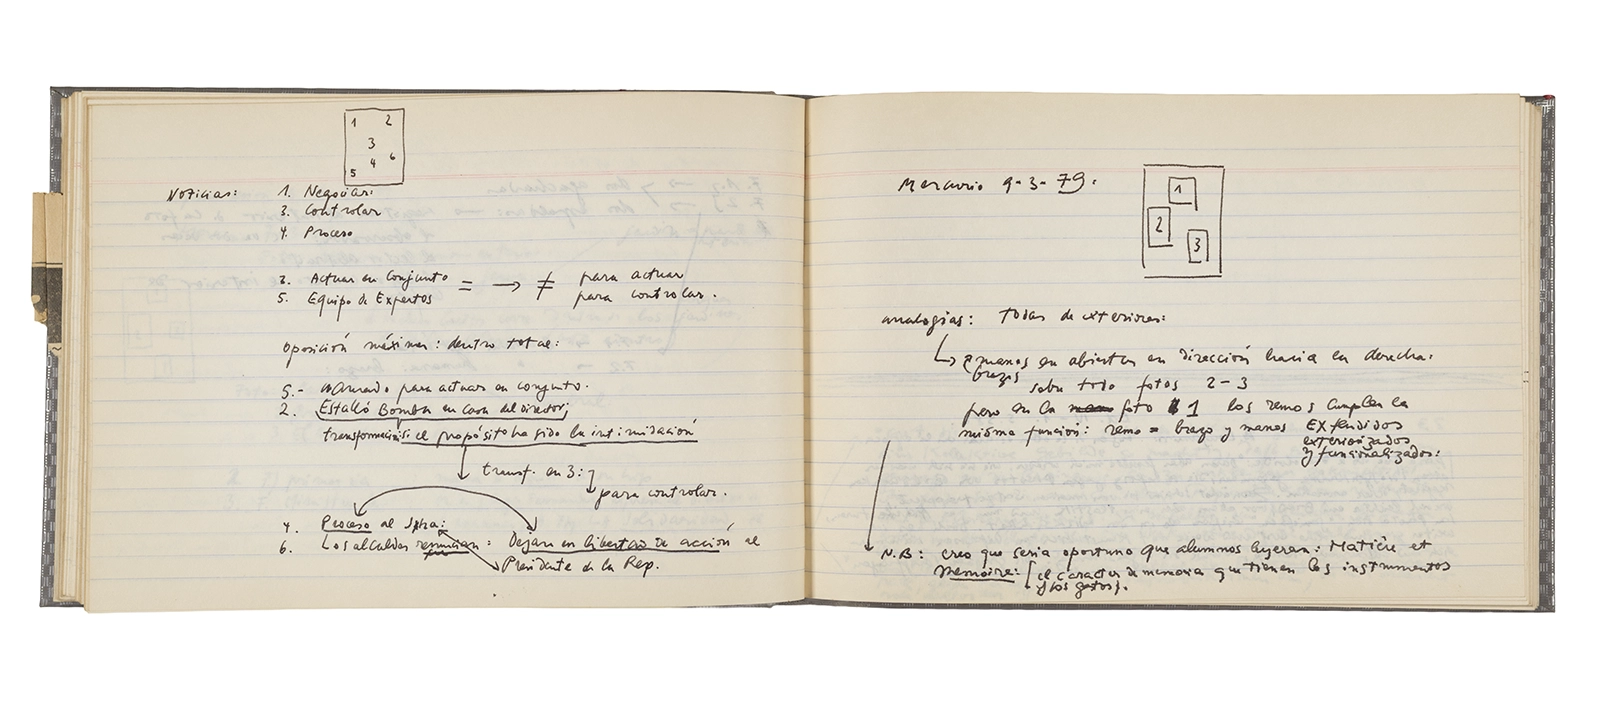 1 2
3
4 6
5
Noticias: 1. Negociar:
3. Controlar
4. Proceso
2. Actuar en Conjunto = → ≠ para actuar
5. Equipo de Expertos para controlar.
oposición máxima: dentro total:
5.- para actuar en conjunto.
2. Estalló Bomba en Casa del director;
transformación: si el propósito ha sido la intimidación
transf. en 3:
para controlar.
4. Proceso al
6. Los alcaldes renuncian: Dejan en libertad de acción al
Presidente de la Rep.
Mercurio 9-3-79.
1
2
3
analogías: todas de exteriores:
2 manos en abiertas en dirección hacia la derecha.
brazos sobre todo fotos 2-3
pero en la foto 1 los remos cumplen la
misma función: remo = brazo y manos EXtendidos
exteriorizados
y funcionalizados:
N.B: creo que sería oportuno que alumnos leyeran: Matière et
Memoire: el caracter de memoria que tienen los instrumentos
y los gestos.